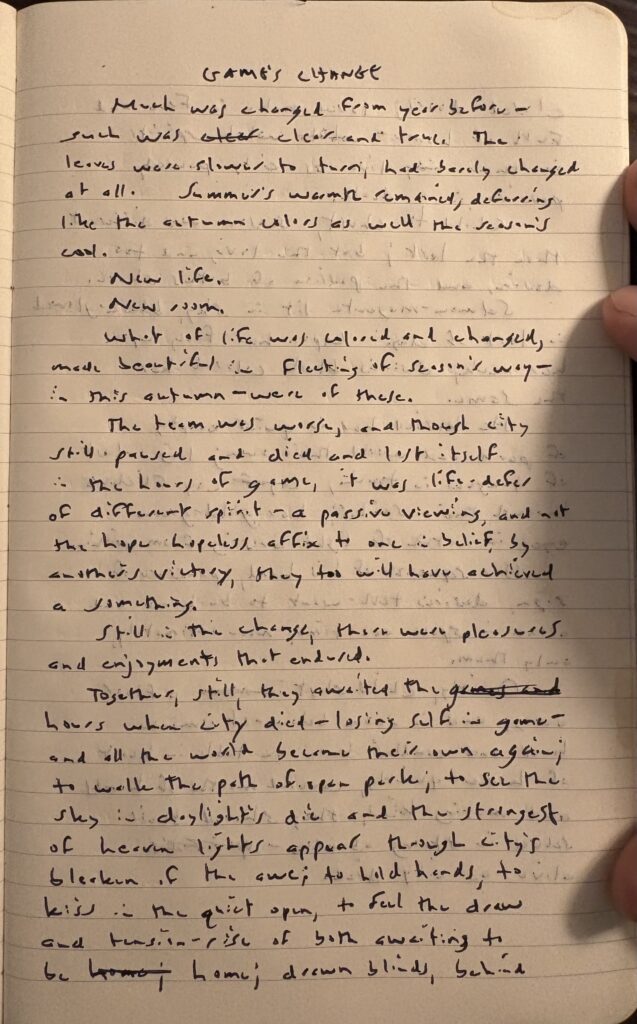 GAME'S CHANGE
Much was changed from year before –
such was clear clear and true. The
leaves were slower to turn, had barely changed
at all. Summer's warmth remained, deferring
like the autumn colors as well the season's
cool.
New life.
New room.
What of life was colored and changed,
made beautiful in fleeting of season's way –
in this autumn – were of these.
The team was worse, and though city
still paused and died and lost itself
in the hours of game, it was life-defer
of different spirit – a passive viewing, and not
the hope hopeless affix to one in belief, by
another's victory, they too will have achieved
a something.
Still in the change, there were pleasures
and enjoyments that endured.
Together, still, they awaited the games and
hours when city died – losing self in game –
and all the world became their own again;
to walk the path of open park; to see the
sky in daylight's die and the strongest
of heaven lights appear through city's
bleaken of the awe; to hold hands, to
kiss in the quiet open, to feel the draw
and tension-rise of both awaiting to
be home; home; drawn blinds, behind